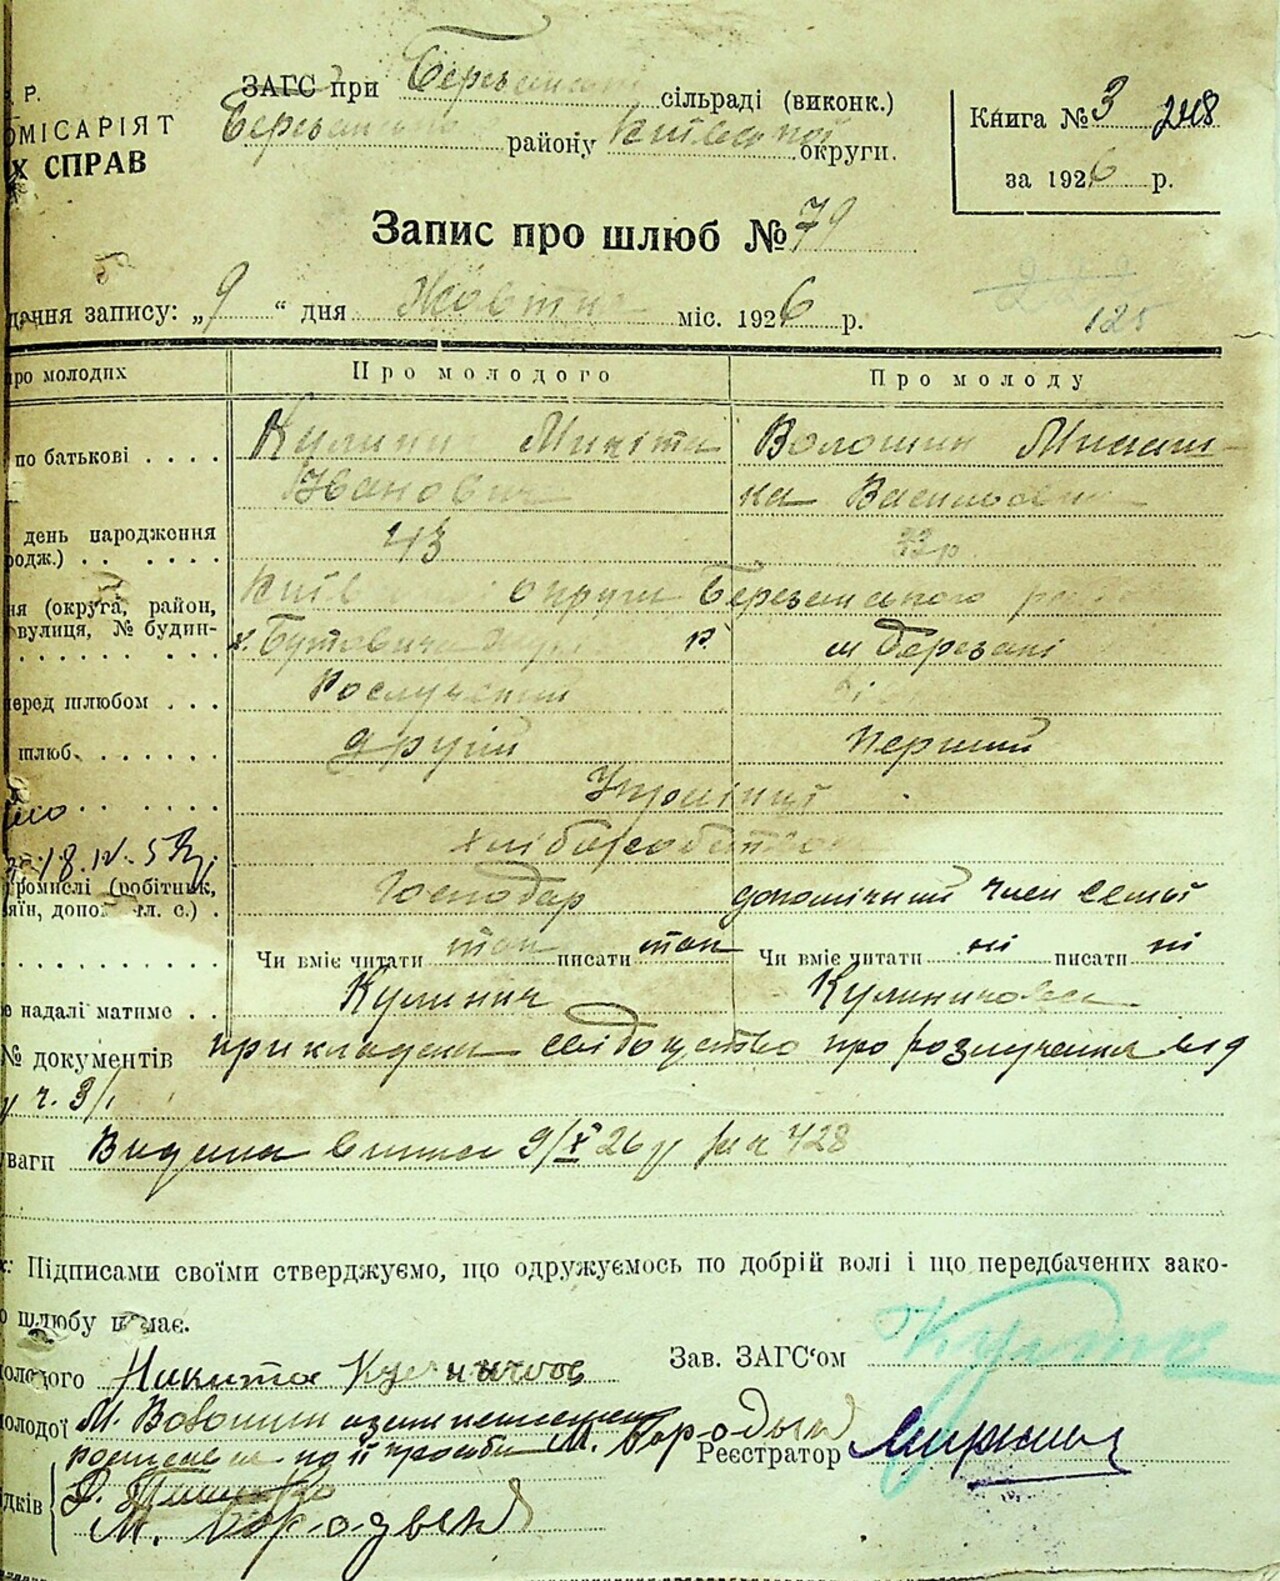 Р.
ОМІСАРІЯТ
Х СПРАВ
ЗАГС при Березанські сільраді (виконк.)
Березанського району Київської округи.
Книга № 3 218
за 1926 р.
Запис про шлюб № 79
дання запису: „9“ дня Жовтня міс. 1926 р.
125
ро молодих
Про молодого
Про молоду
по батькові
Кулинич Микіта
Іванович
Волошин Минаш-
ка Васильовна
день народження
родж.)
43
33 р
ня (округа, район,
вулиця, № будин-
Київської округи Березанського району
х. Бутовичів р.
м Березані
перед шлюбом
Розлучений
шлюб
другій
перший
Українці
хліборобство
18.IV.
промислі (робітник,
яїн, допом. чл. с.)
Господар
допомічний член семьї
Чи вміє читати так писати так
Чи вміє читати ні писати ні
надалі матиме
Кулинич
Кулиничова
№ документів прикладено свідоцтво про розлучення від
ч. 3/1
уваги Видана виписа 9/X 26 у за № 428
Підписами своїми стверджуємо, що одружуємось по добрій волі і що передбачених зако-
о шлюбу немає.
молодого Никита Кулиничов
Зав. ЗАГС'ом
молодої М. Волошин
по її просьби М. Бородын
Реєстратор
ідків
М. Бородын